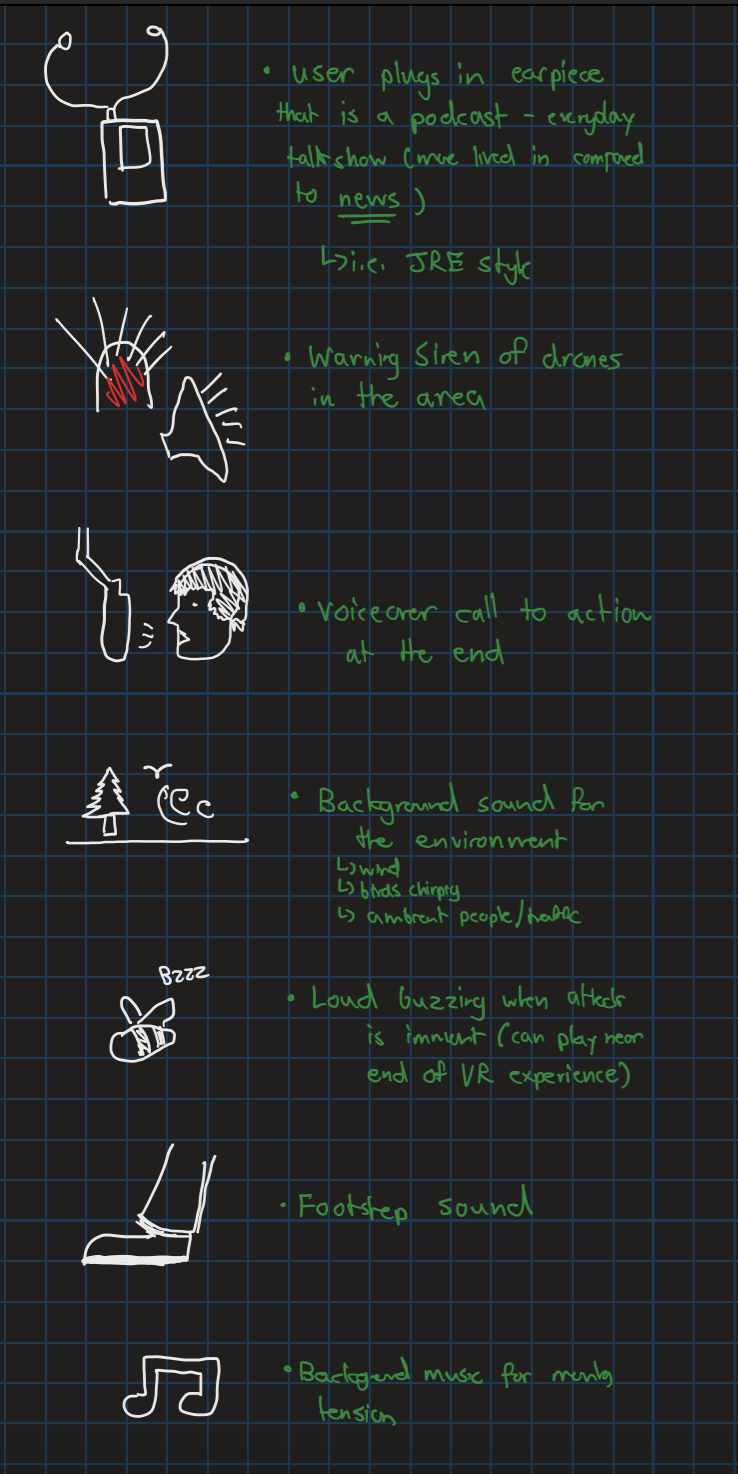 • user plugs in earpiece
that is a podcast - everyday
talkshow (more lived in compared
to news)
↳ i.e. JRE style
• Warning Siren of drones
in the area
• voiceover call to action
at the end
• Background sound for
the environment
↳ wind
↳ birds chirping
↳ ambient people/traffic
Bzzz
• Loud buzzing when attack
is (can play near
end of VR experience)
• Footstep sound
• Background music for
tension